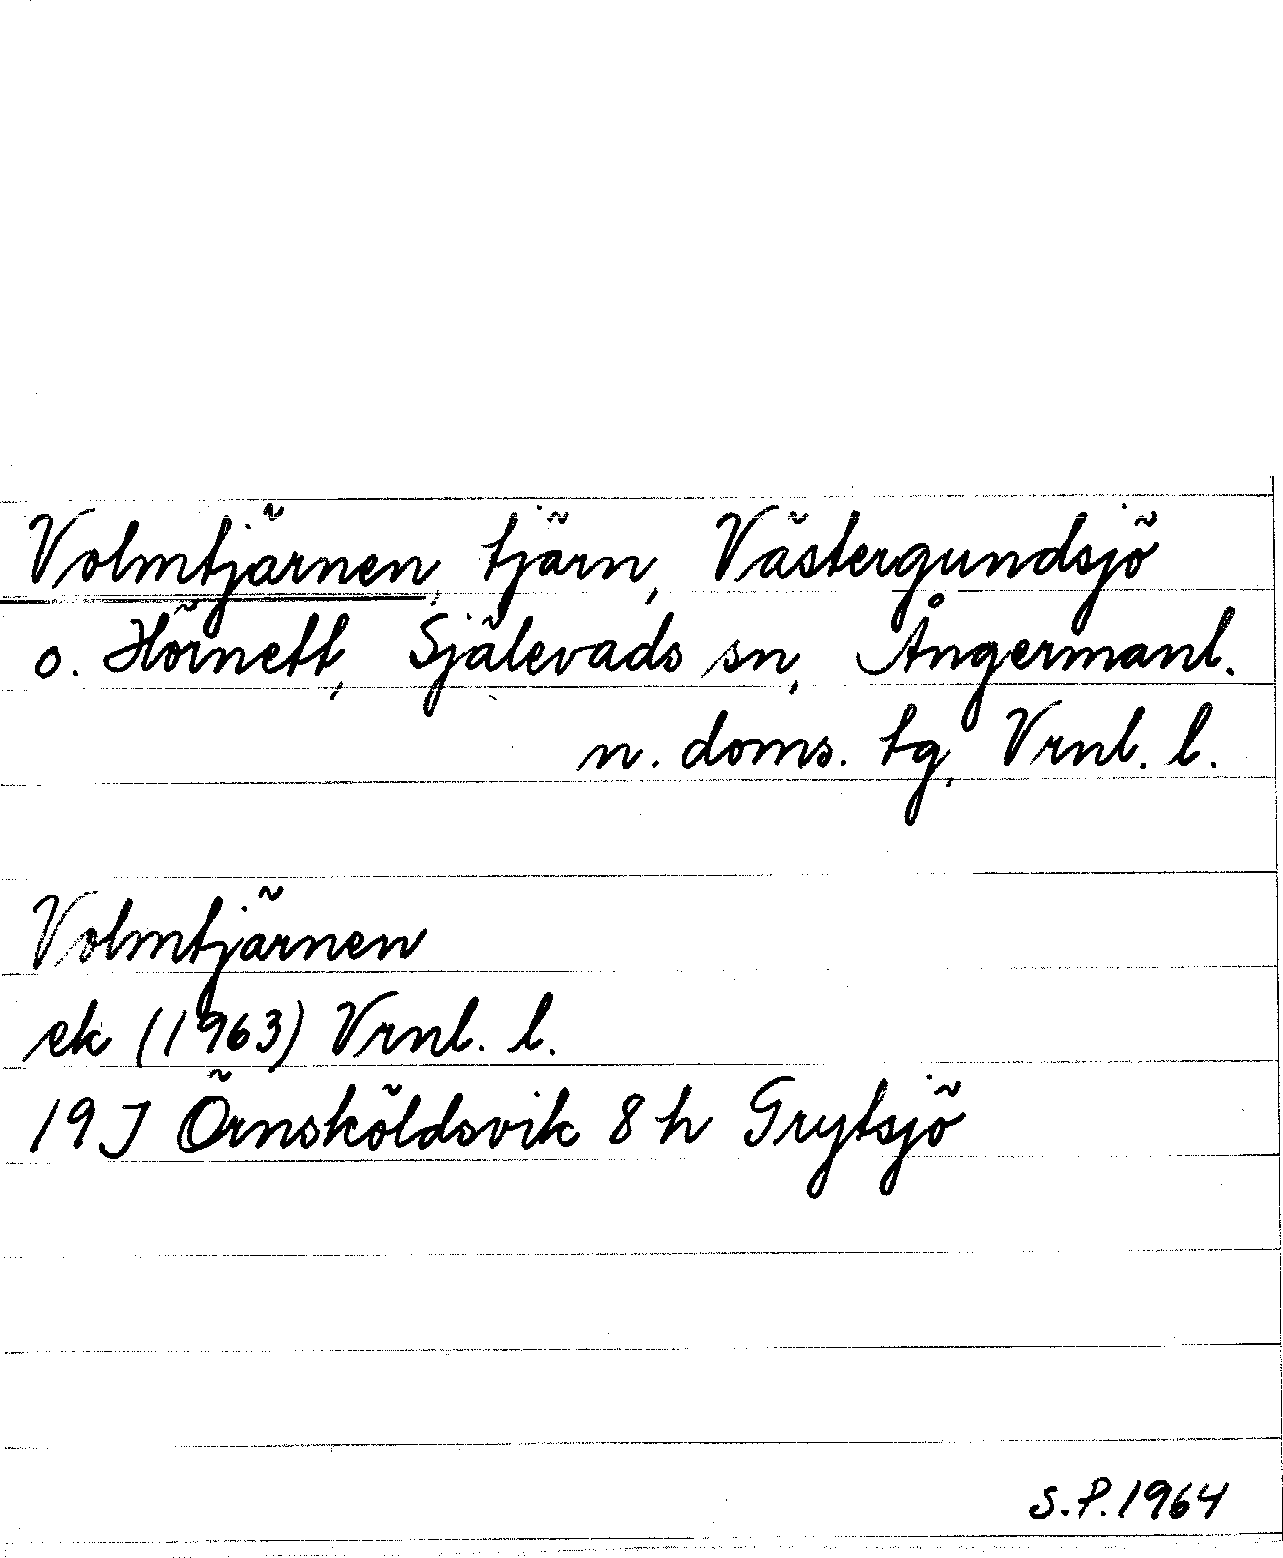 Volmtjärnen, tjärn, Västergundsjö
o. Hörnett, Själevads sn, Ångermanl.
n. doms. tg, Vrnl. l.
Volmtjärnen
ek (1963) Vrnl. l.
19J Örnsköldsvik 8h Grytsjö
S.P. 1964